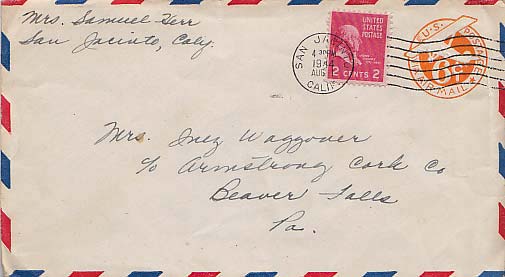 Mrs. Samuel Kerr
San Jacinto, Caly.
UNITED
STATES
POSTAGE
2 CENTS 2
SAN JACINTO
4 PM
1944
AUG
CALIF.
U.S. POSTAGE
6c
AIR MAIL
Mrs. Inez Waggoner
c/o Armstrong Cork Co
Beaver Falls
Pa.